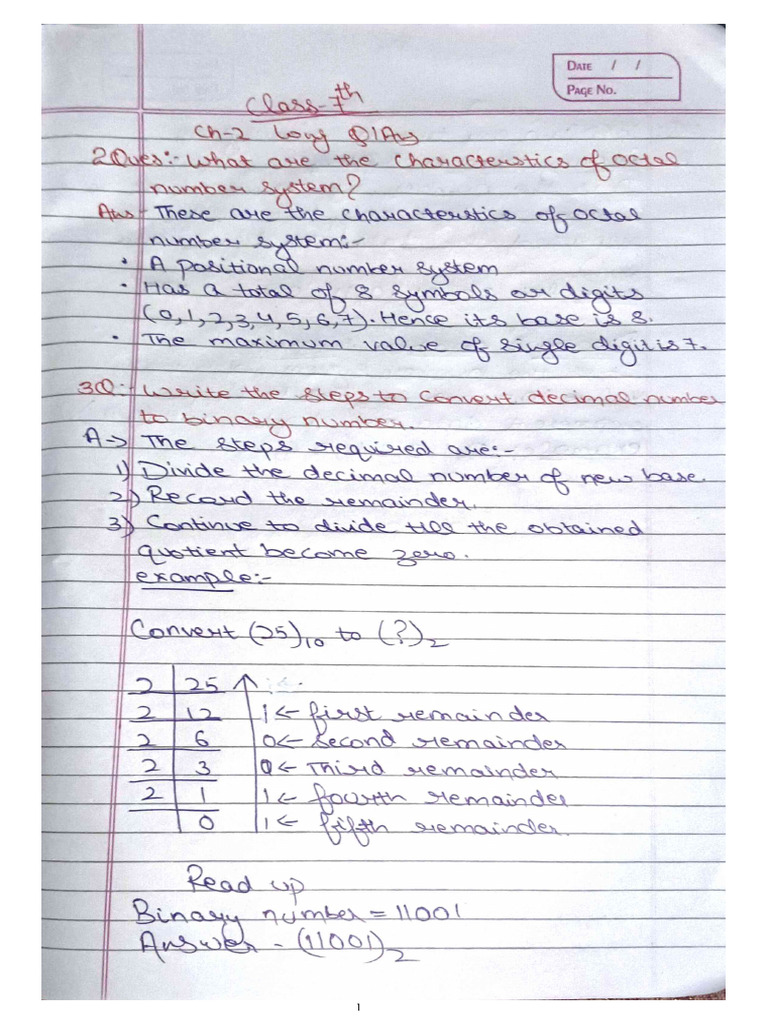 DATE / /
PAGE NO.
Class-7th
Ch-2 Long Q/Ans
2Ques:- What are the characterstics of octal
number system?
Ans- These are the characterstics of octal
number system:-
• A positional number system
• Has a total of 8 symbols or digits
(0,1,2,3,4,5,6,7). Hence its base is 8.
• The maximum value of single digit is 7.
3Q:- Write the steps to convert decimal number
to binary number.
A→ The steps required are:-
1) Divide the decimal number of new base.
2) Record the remainder.
3) Continue to divide till the obtained
quotient become zero.
example:-
Convert (25)10 to (?)2
2 25 ↑
2 12 1← first remainder
2 6 0← second remainder
2 3 0← Third remainder
2 1 1← fourth remainder
0 1← fifth remainder.
Read up
Binary number = 11001
Answer - (11001)2
1